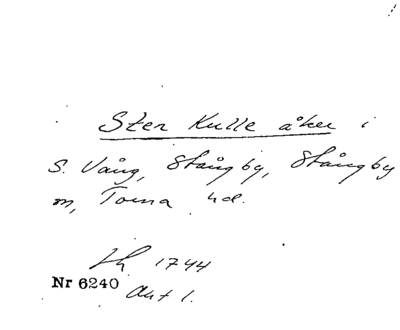 Sten Kulle åker i
S. Vång, Stångby, Stångby
sn, Torna hd.
Lh 1744
Nr 6240
Akt 1.